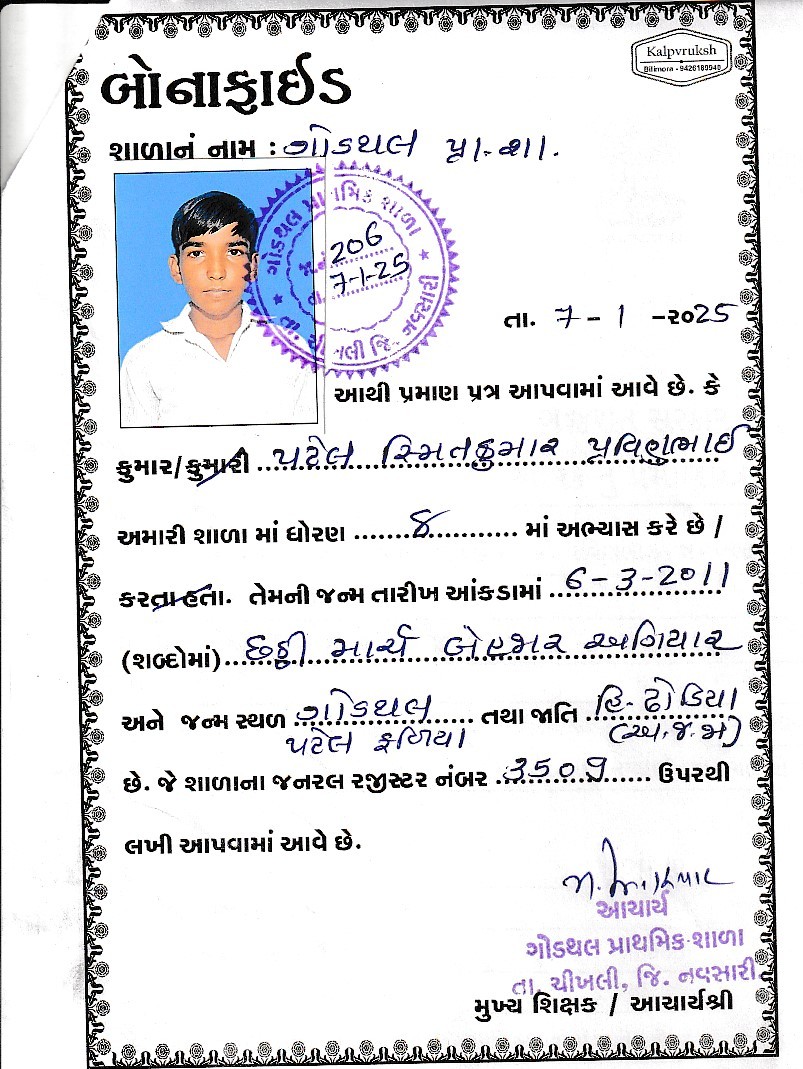 Kalpvruksh
Bilimora - 9426189940
બોનાફાઈડ
શાળાનું નામ : ગોડથલ પ્રા. શા.
ગોડથલ પ્રાથમિક શાળા
જા.નં. 206
તા. 7-1-25
તા. ચીખલી જિ. નવસારી
તા. 7 - 1 - ૨૦25
આથી પ્રમાણ પત્ર આપવામાં આવે છે. કે
કુમાર/કુમારી પટેલ સ્મિતકુમાર પ્રવિણભાઈ
અમારી શાળા માં ધોરણ ૪ માં અભ્યાસ કરે છે /
કરતા હતા. તેમની જન્મ તારીખ આંકડામાં 6-3-2011
(શબ્દોમાં) છઠ્ઠી માર્ચ બેહજાર અગિયાર
અને જન્મ સ્થળ ગોડથલ તથા જાતિ હિ. ઢોડિયા
પટેલ ફળિયા (અ.જ.જા)
છે. જે શાળાના જનરલ રજીસ્ટર નંબર 3509 ઉપરથી
લખી આપવામાં આવે છે.
આચાર્ય
ગોડથલ પ્રાથમિક શાળા
તા. ચીખલી, જિ. નવસારી.
મુખ્ય શિક્ષક / આચાર્યશ્રી